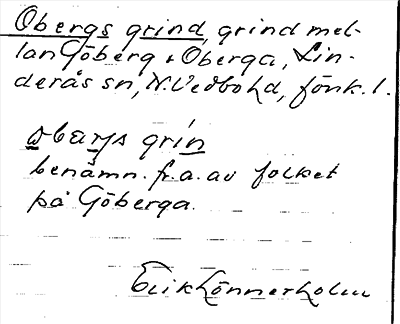 Obergs grind, grind mel-
lan Göberg + Oberga, Lin-
derås sn, N. Vedbo hd, Jönk. l.
grin
benämn. fr. a. av folket
på Göberga.
Erik Lönnerholm